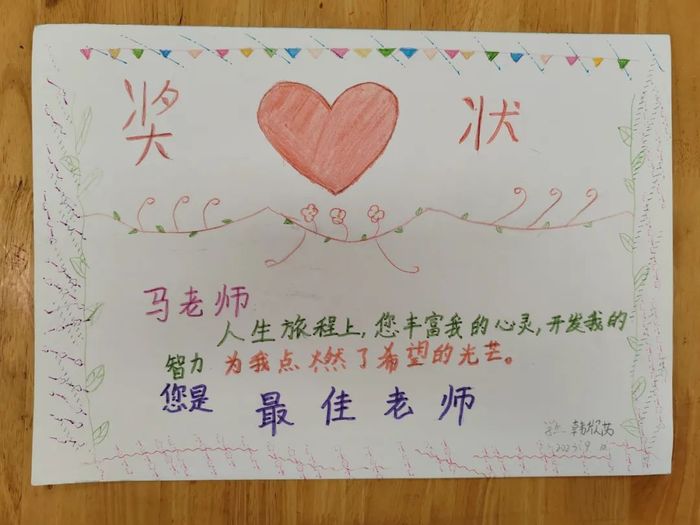 奖 状
马老师
人生旅程上,您丰富我的心灵,开发我的
智力 为我点燃了希望的光芒。
您是 最佳老师
2023.9